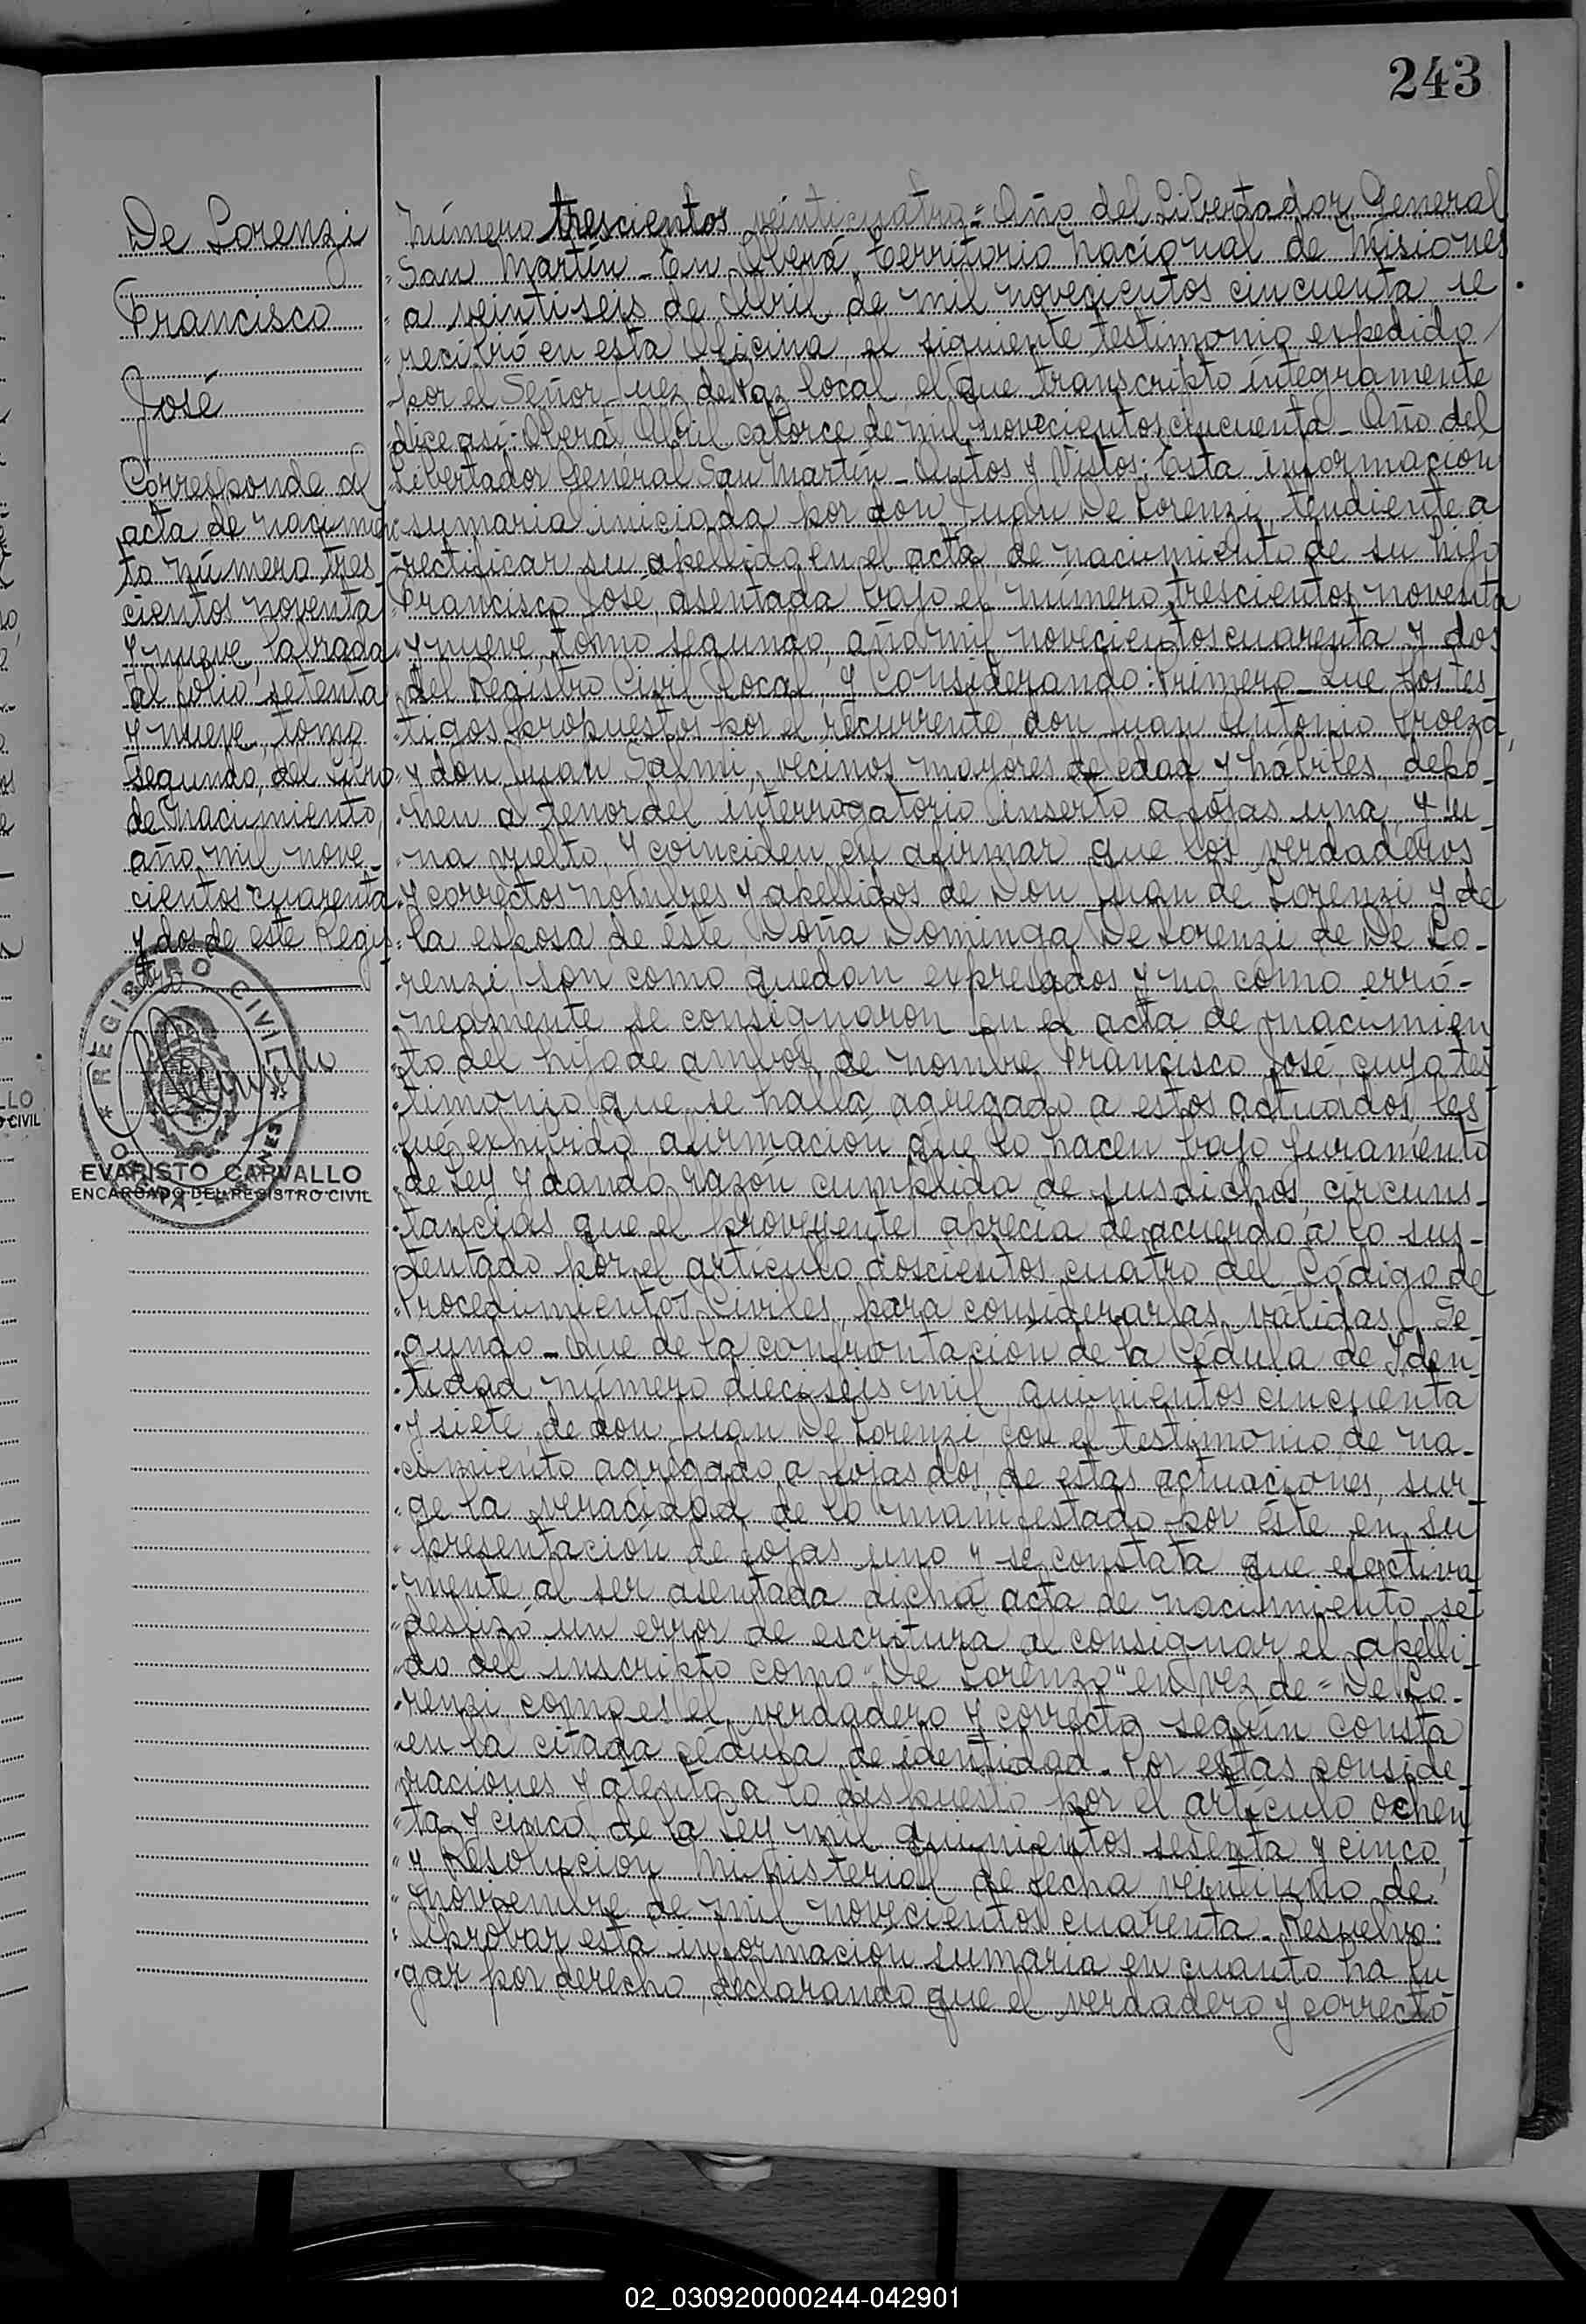 243
De Lorenzi
Francisco
José
Corresponde al
acta de nacimien
to número tres
cientos noventa
y nueve, labrada
al folio setenta
y nueve, tomo
segundo, del libro
de nacimiento,
año mil nove-
cientos cuarenta
y dos de este Regis-
tro
REGISTRO CIVIL
EVARISTO CARVALLO
ENCARGADO DEL REGISTRO CIVIL
Número trescientos veinticuatro = Año del Libertador General
San Martín - En Oberá, Territorio Nacional de Misiones
a veintiseis de Abril de mil novecientos cincuenta, se
recibió en esta Oficina, el siguiente testimonio expedido
por el Señor Juez de Paz local, el que transcripto íntegramente
dice así: Oberá Abril catorce de mil novecientos cincuenta - Año del
Libertador General San Martín - Autos y Vistos: Esta información
sumaria iniciada por don Juan De Lorenzi, tendiente a
rectificar su apellido en el acta de nacimiento de su hijo
Francisco José, asentada bajo el número trescientos noventa
y nueve, tomo segundo, año mil novecientos cuarenta y dos
del Registro Civil local, y Considerando: Primero - Que los tes
tigos propuestos por el recurrente, don Juan Antonio
y don Juan Salmi, vecinos mayores de edad y hábiles, depo-
nen a tenor del interrogatorio inserto a fojas una, y u-
na vuelto, y coinciden en afirmar que los verdaderos
y correctos nombres y apellidos de Don Juan de Lorenzi y de
la esposa de éste Doña Dominga De Lorenzi de De Lo-
renzi, son como quedan expresados y no como erró-
neamente se consignaron en el acta de nacimien
to del hijo de ambos, de nombre Francisco José, cuyo tes
timonio que se halla agregado a estos actuados, les
fué exhibido, afirmación que lo hacen bajo juramento
de Ley y dando razón cumplida de sus dichos, circuns-
tancias que el proveyente aprecia de acuerdo a lo sus-
tentado por el artículo doscientos cuatro del Código de
Procedimientos Civiles, para considerarlas válidas. Se
gundo - Que de la confrontación de la Cédula de Iden
tidad número dieciseis mil quinientos cincuenta
y siete, de don Juan De Lorenzi, con el testimonio de na-
cimiento agregado a fojas dos, de estas actuaciones, sur
ge la veracidad de lo manifestado por éste en su
presentación de fojas uno y se constata que efectiva
mente al ser asentada dicha acta de nacimiento, se
deslizó un error de escritura al consignar el apelli-
do del inscripto como "De Lorenzo" en vez de = De Lo-
renzi, como es el verdadero y correcto según consta
en la citada cédula de identidad. Por estas conside
raciones y atento a lo dispuesto por el artículo ochen
ta y cinco de la Ley mil quinientos sesenta y cinco,
y Resolución Ministerial de fecha veintiuno de
noviembre de mil novecientos cuarenta. Resuelvo:
Aprobar esta información sumaria en cuanto ha lu
gar por derecho, declarando que el verdadero y correcto
LLO
O CIVIL
02_030920000244-042901